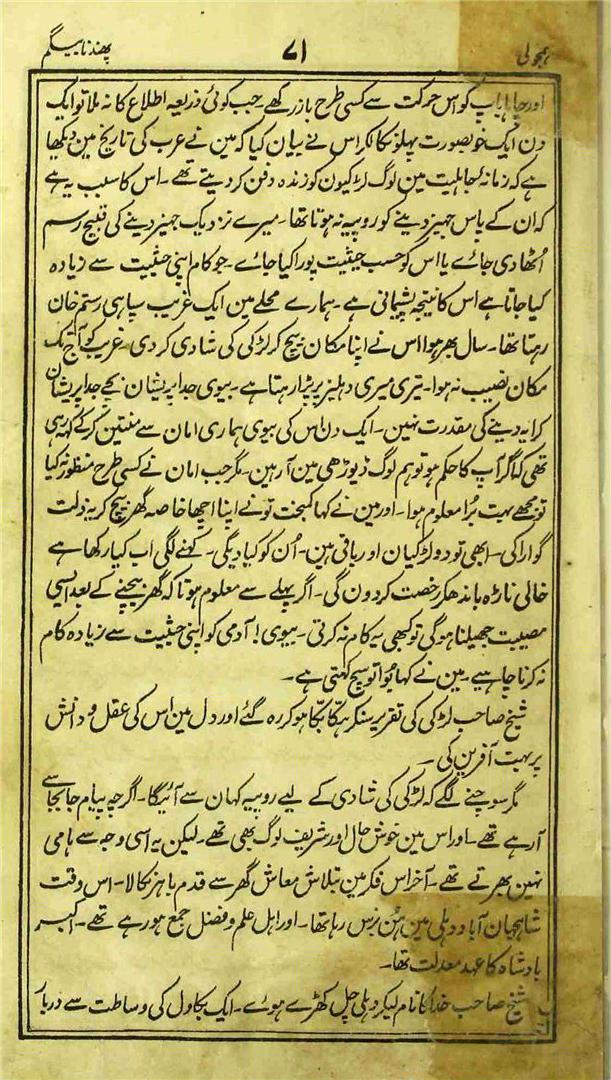 ہمجولی ۷۱ پھندنا بیگم
اور چاہا باپ کو اس حرکت سے کسی طرح باز رکھے۔ جب کوئی ذریعہ اطلاع کا نہ ملا تو ایک
دن ایک خوبصورت پہلو نکالکر اس نے بیان کیا کہ مین نے عرب کی تاریخ مین دیکھا
ہے کہ زمانہٴ جاہلیت مین لوگ لڑکیون کو زندہ دفن کر دیتے تھے۔ اس کا سبب یہ ہے
کہ ان کے پاس جہیز دینے کو روپیہ نہ ہوتا تھا۔ میرے نزدیک جہیز دینے کی قبیح رسم
اُٹھا دی جائے یا اس کو حسب حیثیت پورا کیا جائے۔ جو کام اپنی حیثیت سے زیادہ
کیا جاتا ہے اس کا نتیجہ پشیمانی ہے۔ ہمارے محلے مین ایک غریب سپاہی رستم خان
رہتا تھا۔ سال بھر ہوا اس نے اپنا مکان بیچ کر لڑکی کی شادی کر دی۔ غریب کو آج تک
مکان نصیب نہ ہوا۔ تیری میری دہلیز پر پڑا رہتا ہے۔ بیوی جدا پریشان بچے جدا پریشان
کرایہ دینے کی مقدرت نہین۔ ایک دن اس کی بیوی ہماری امان سے منتین کر کے کہہ رہی
تھی کہ اگر آپ کا حکم ہو تو ہم لوگ ڈیوڑھی مین آ رہین۔ مگر جب امان نے کسی طرح منظور نہ کیا
تو مجھے بہت بُرا معلوم ہوا۔ اور مین نے کہا کمبخت تو نے اپنا اچھا خاصہ گھر بیچ کر یہ ذلت
گوارا کی۔ ابھی تو دو لڑکیان اور باقی ہین۔ اُن کو کیا دیگی۔ کہنے لگی اب کیا رکھا ہے
خالی ناڑہ باندھکر رخصت کر دون گی۔ اگر پہلے سے معلوم ہوتا کہ گھر بیچنے کے بعد ایسی
مصیبت جھیلنا ہو گی تو کبھی یہ کام نہ کرتی۔ بیوی! آدمی کو اپنی حیثیت سے زیادہ کام
نہ کرنا چاہیے۔ مین نے کہا بُوا تو سچ کہتی ہے۔
شیخ صاحب لڑکی کی تقریر سنکر ہکّا بکّا ہو کر رہ گئے اور دل مین اس کی عقل و دانش
پر بہت آفرین کی۔
مگر سوچنے لگے کہ لڑکی کی شادی کے لیے روپیہ کہان سے آئیگا۔ اگرچہ پیام جابجا سے
آ رہے تھے۔ اور اس مین خوش حال اور شریف لوگ بھی تھے۔ لیکن یہ اسی وجہ سے ہامی
نہین بھرتے تھے۔ آخر اس فکر مین بتلاش معاش گھر سے قدم باہر نکالا۔ اس وقت
شاہجہان آباد دہلی مین ہُن برس رہا تھا۔ اور اہل علم و فضل جمع ہو رہے تھے۔ اکبر
بادشاہ کا عہد معدلت تھا۔
شیخ صاحب خدا کا نام لیکر دہلی چل کھڑے ہوے۔ ایک بکاول کی وساطت سے دربار